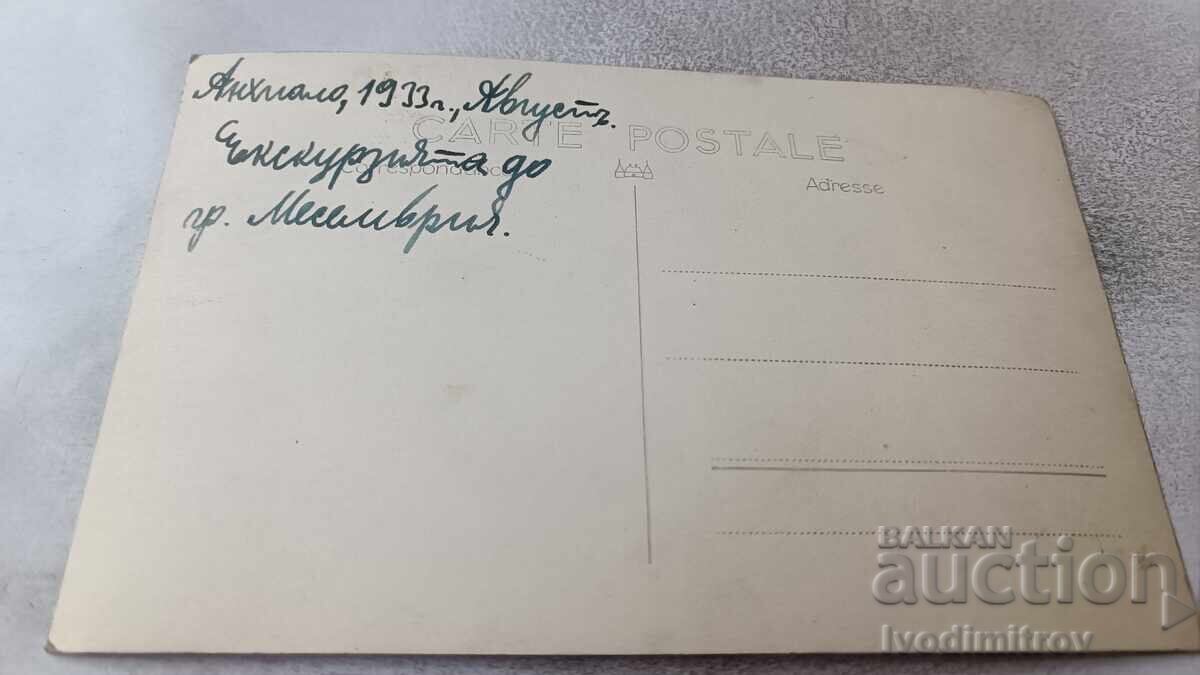 Анхиало, 1933 г., Августъ.
CARTE POSTALE
Екскурзията до
Correspondance
Adresse
гр. Месемврия.
BALKAN
auction
Ivodimitrov